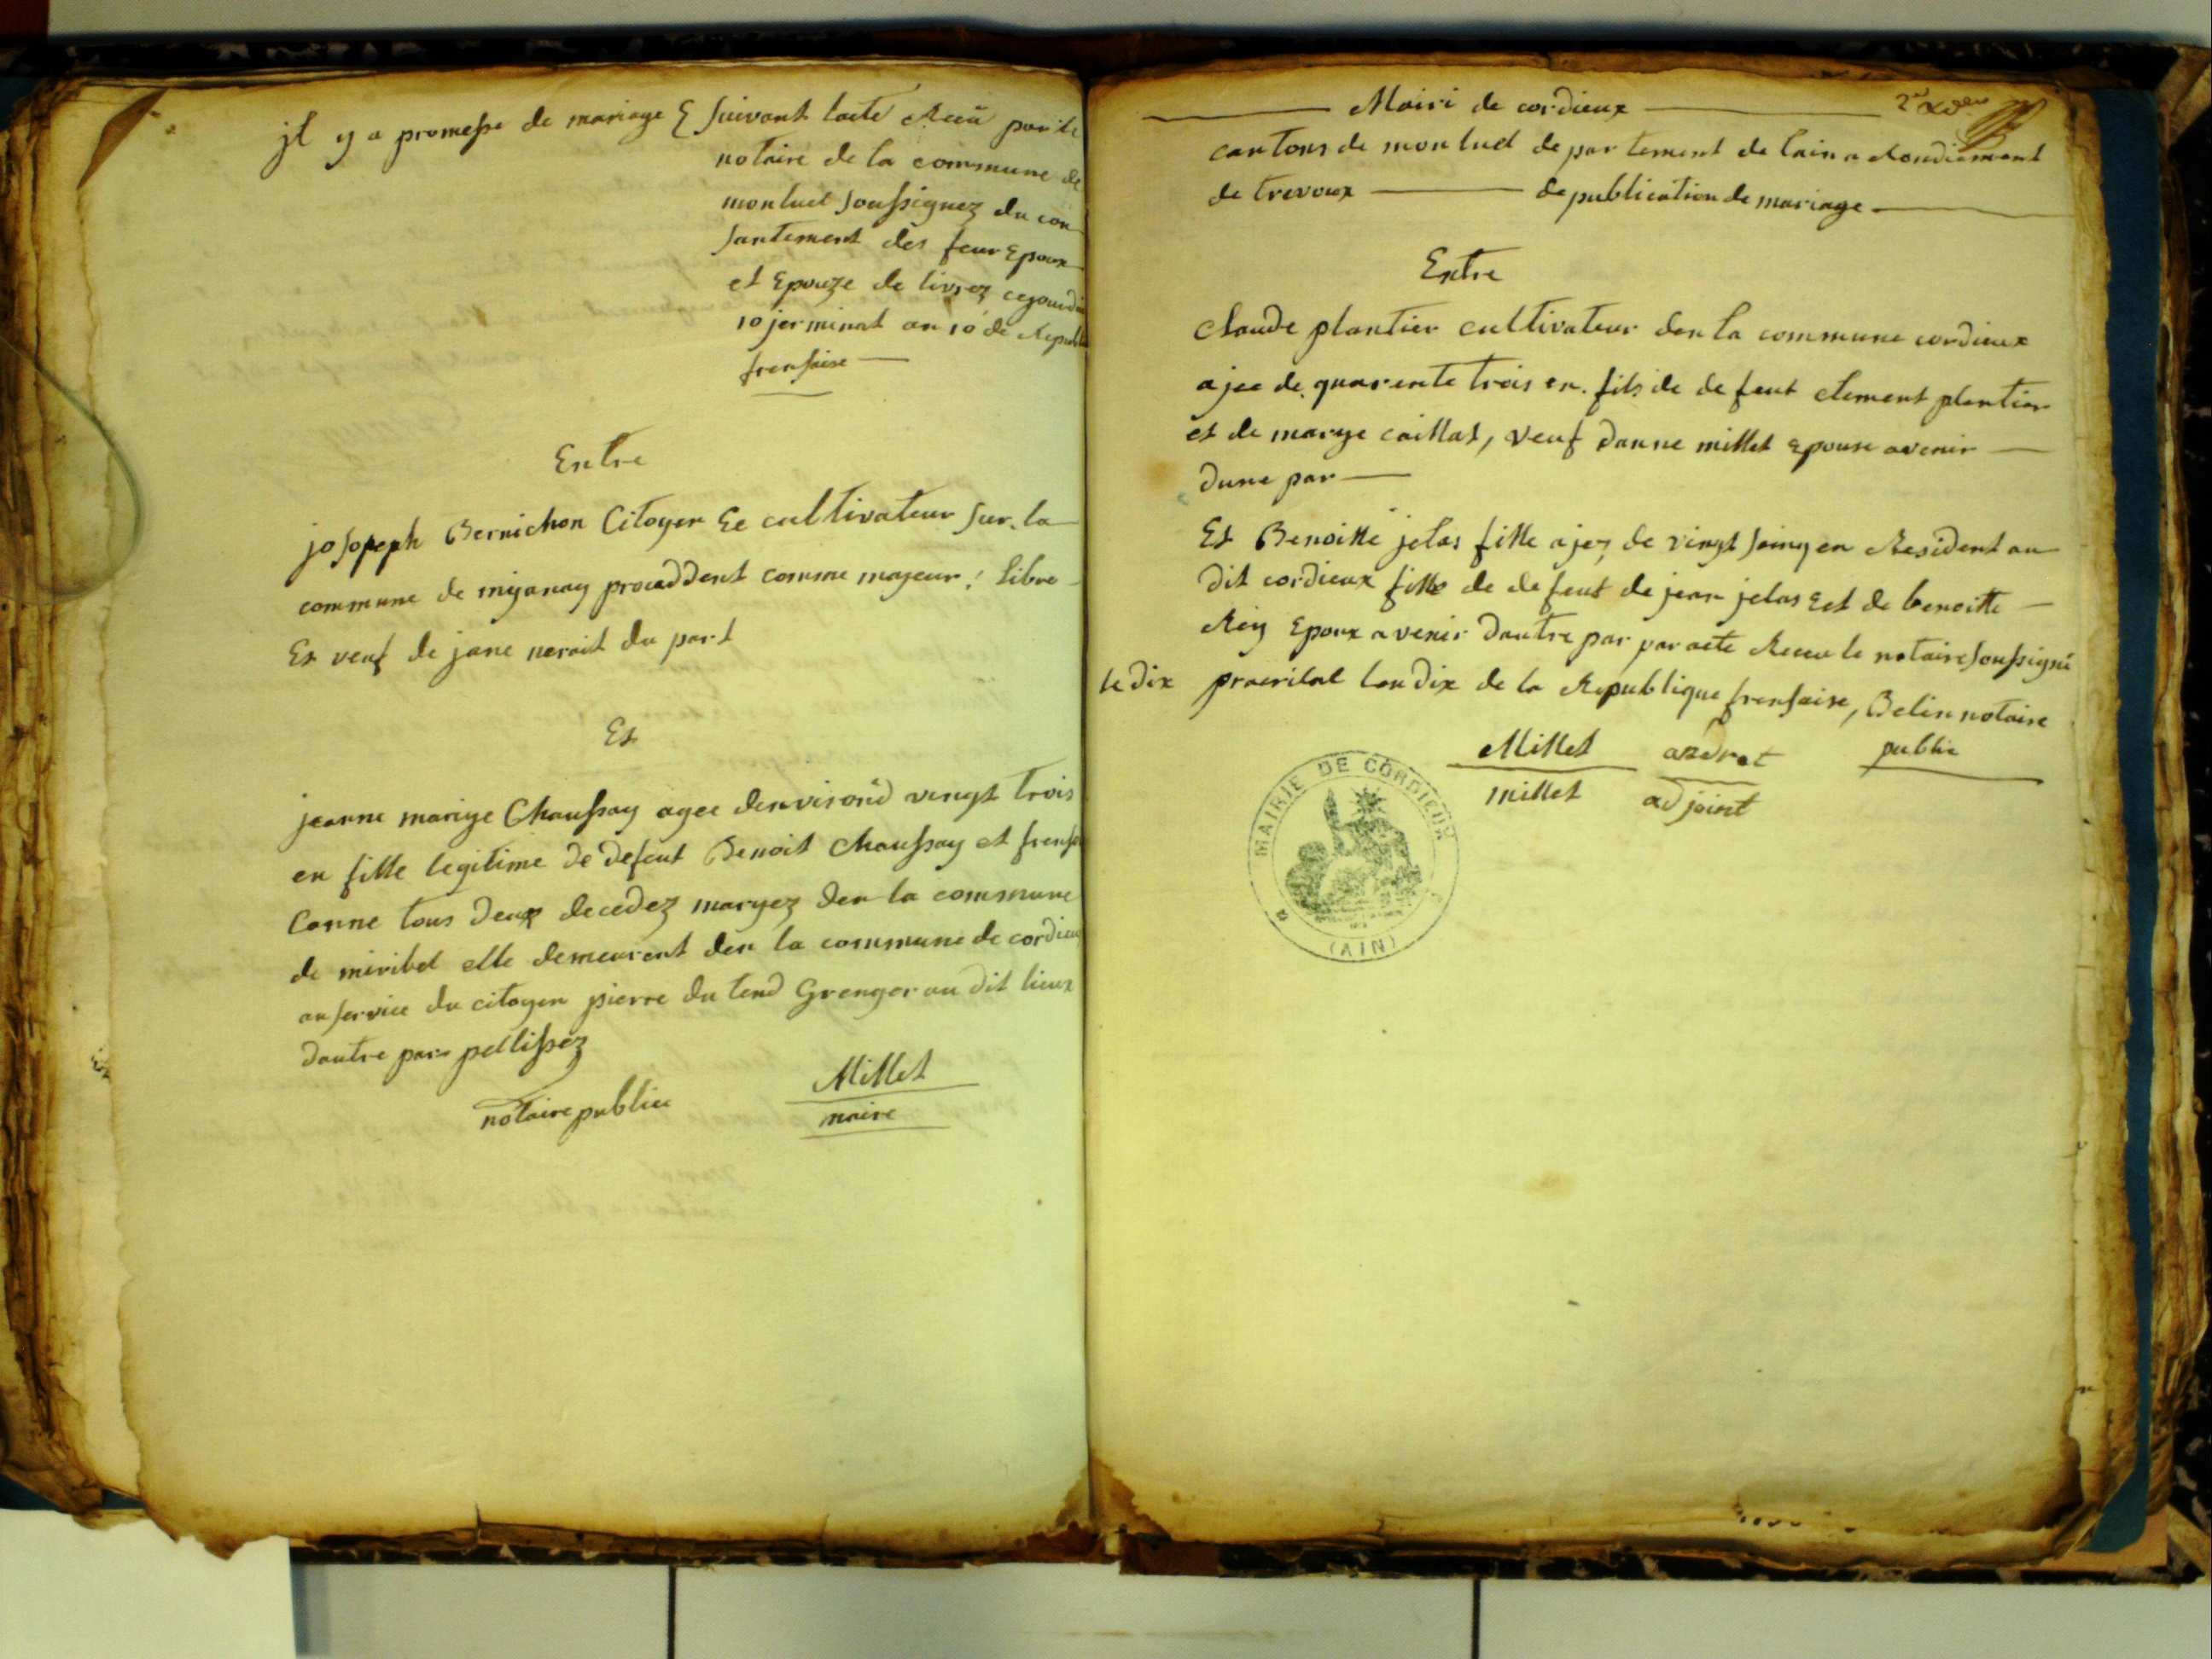 jl y a promesse de mariage & suivant lacte Receu par le
notaire de la commune de
montuel soussignez du con
santement des feur Epoux
et Epouze de livrez cejourdui
10 jerminal an 10 de Republi
frensaise
Entre
josopeph Bernichon Citoyen Ee cultivateur sur la
commune de miyanay proceddent comme majeur: libre
Et veuf de jane neroit du part
Et
jeanne mariye Chaussay agee denvirond vingt trois
en fille legitime de defeut Benoit Chaussay et frensoi
Conne tous deux decedez maryez den la commune
de miribel elle demeurent den la commune de cordieu
au service du citoyen pierre du tend Grenger au dit lieux
dautre par pellissez
notaire publice
Millet
maire
Mairi de cordieux
cantons de montuel departement de lain arondicement
de trevoux de publication de mariage
Entre
Claude plantier cultivateur den la commune cordieux
ajee de quarente trois en. fils de de feut clement plantier
et de marye caillat, veuf danne millet epouse avenir
dune par
Et Benoitte jelas fille ajez de vingt sainq en Resident au
dit cordieux fille de de feut de jean jelas Eet de benoitte
Rey Epoux avenir dautre par par acte Receu le notaire soussigné
le dix praerilal lan dix de la Republique frensaise, Belin notaire
Millet azdrat public
millet adjoint
MAIRIE DE CORDIEUX
(AIN)